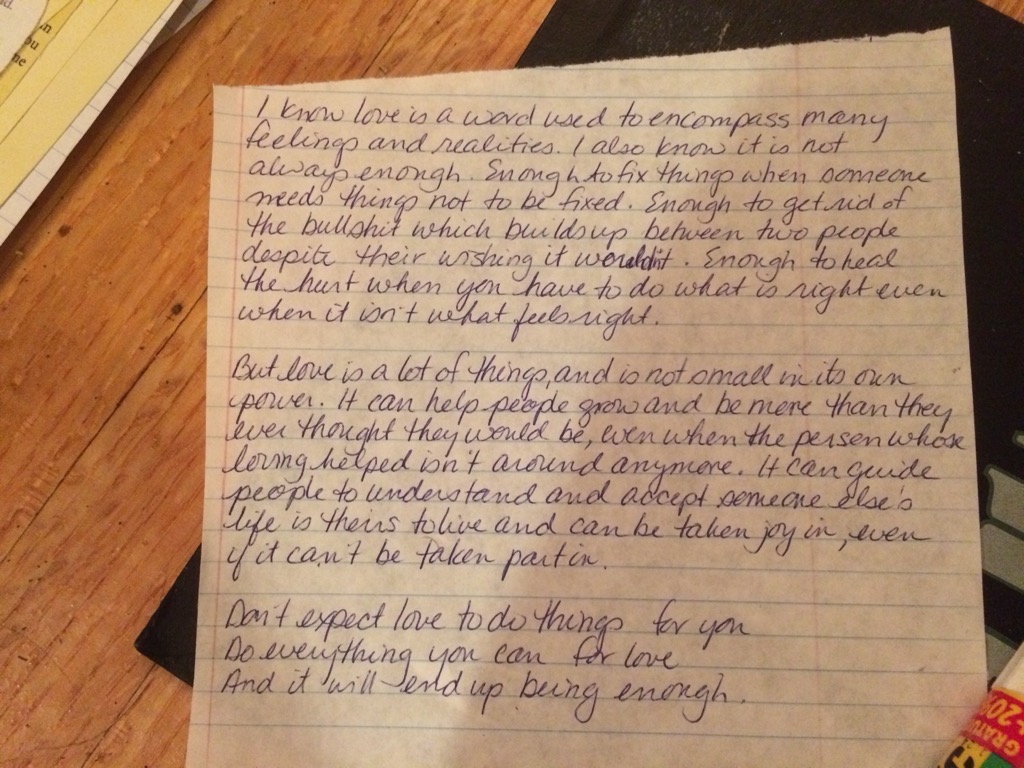 n
ou
ne
I know love is a word used to encompass many
feelings and realities. I also know it is not
always enough. Enough to fix things when someone
needs things not to be fixed. Enough to get rid of
the bullshit which builds up between two people
despite their wishing it wouldn't. Enough to heal
the hurt when you have to do what is right even
when it isn't what feels right.
But love is a lot of things, and is not small in its own
power. It can help people grow and be more than they
ever thought they would be, even when the person whose
loving helped isn't around anymore. It can guide
people to understand and accept someone else's
life is theirs to live and can be taken joy in, even
if it can't be taken part in.
Don't expect love to do things for you
Do everything you can for love
And it will end up being enough.
GRATU
20%